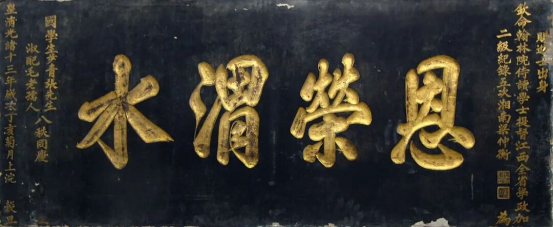 賜進士出身
欽命翰林院侍讀學士提督江西全省學政加
二級紀錄三次湘南梁仲衡
為
恩榮渭水
國學生
八秩同慶
皇清光緒十三年歲次丁亥菊月上浣
穀旦